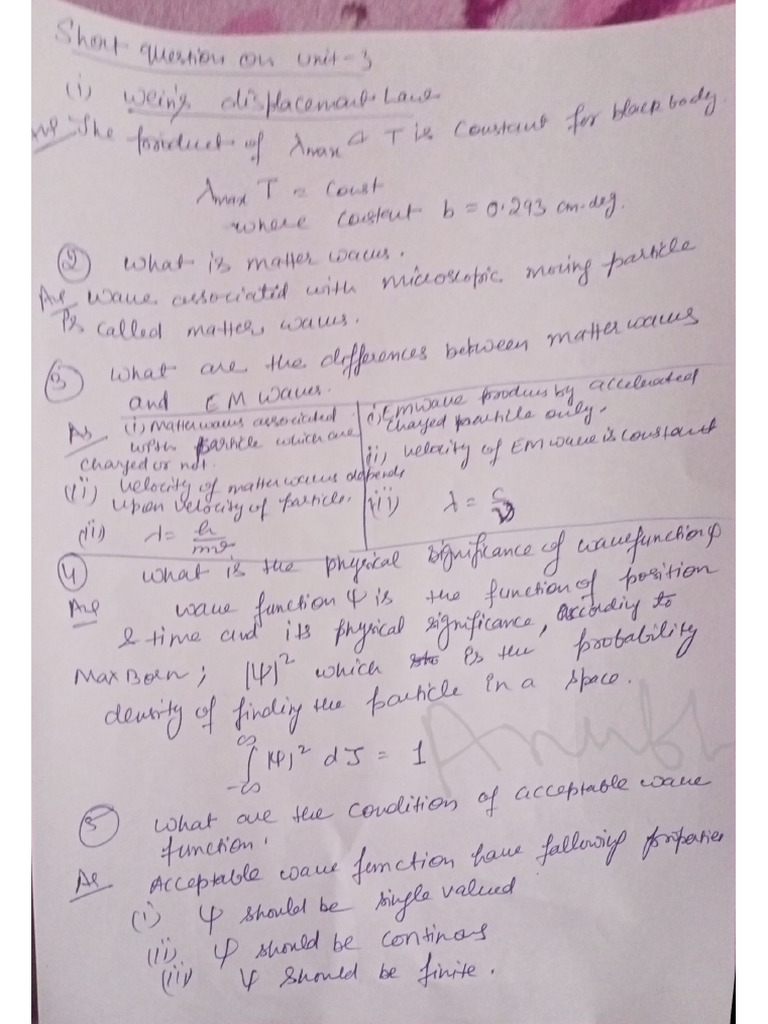 Short question on unit-3
(i) Wein's displacement Law
Ans The product of λmax & T is constant for black body
λmax T = Const
where constent b = 0.293 cm-deg.
② what is matter waves.
Ans wave associated with microscopic moving particle
is called matter waves.
③ what are the differences between matter waves
and EM waves.
As (i) Matter waves associated
with particle which are
charged or not.
(ii) velocity of matter waves depends
upon velocity of particle.
(iii) λ = h/mv
(i) EM wave produces by accelerated
charged particle only.
(ii) velocity of EM wave is constant
(iii) λ = c/ν
④ what is the physical significance of wavefunction ψ
Ans wave function ψ is the function of position
& time and its physical significance, according to
Max Born; |ψ|² which is the probability
density of finding the particle in a space.
∫_{-∞}^{∞} |ψ|² dJ = 1
Anubh
⑤ what are the condition of acceptable wave
function.
As Acceptable wave function have following properties
(i) ψ should be single valued
(ii) ψ should be continous
(iii) ψ should be finite.